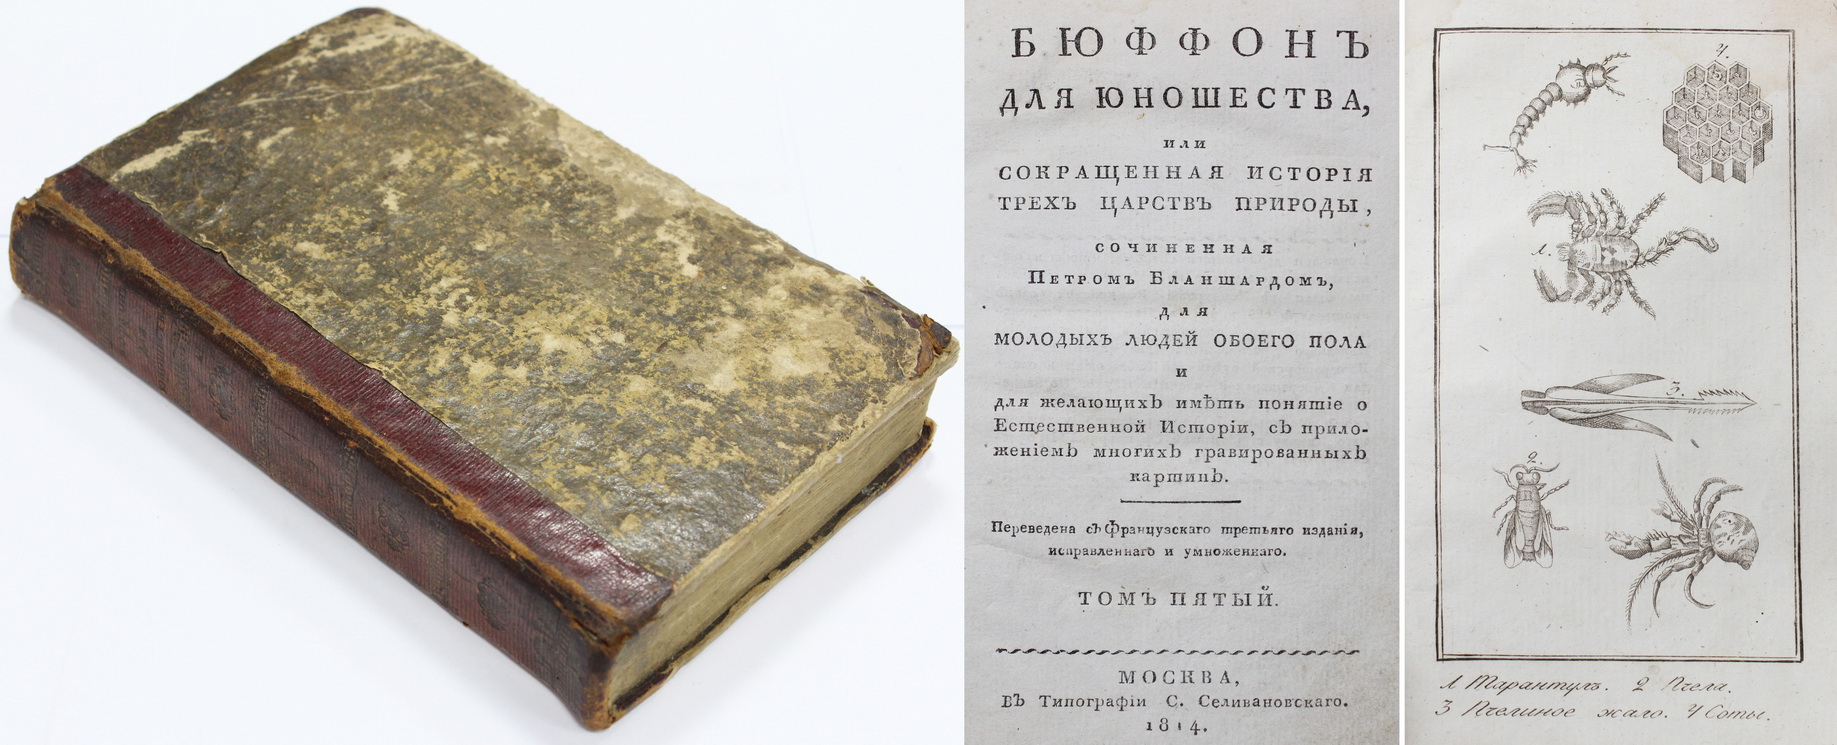 БЮФФОНЪ
ДЛЯ ЮНОШЕСТВА,
ИЛИ
СОКРАЩЕННАЯ ИСТОРІЯ
ТРЕХЪ ЦАРСТВЪ ПРИРОДЫ,
СОЧИНЕННАЯ
ПЕТРОМЪ БЛАНШАРДОМЪ,
ДЛЯ
МОЛОДЫХЪ ЛЮДЕЙ ОБОЕГО ПОЛА
И
для желающихъ имѣть понятіе о
Естественной Исторіи, съ прило-
женіемъ многихъ гравированныхъ
картинъ.
Переведена съ Французскаго третьяго изданія,
исправленнаго и умноженнаго.
ТОМЪ ПЯТЫЙ.
МОСКВА,
Въ Типографіи С. Селивановскаго.
1814.
4.
1.
3.
2.
1 Тарантулъ. 2 Пчела.
3 Пчелиное жало. 4 Соты.